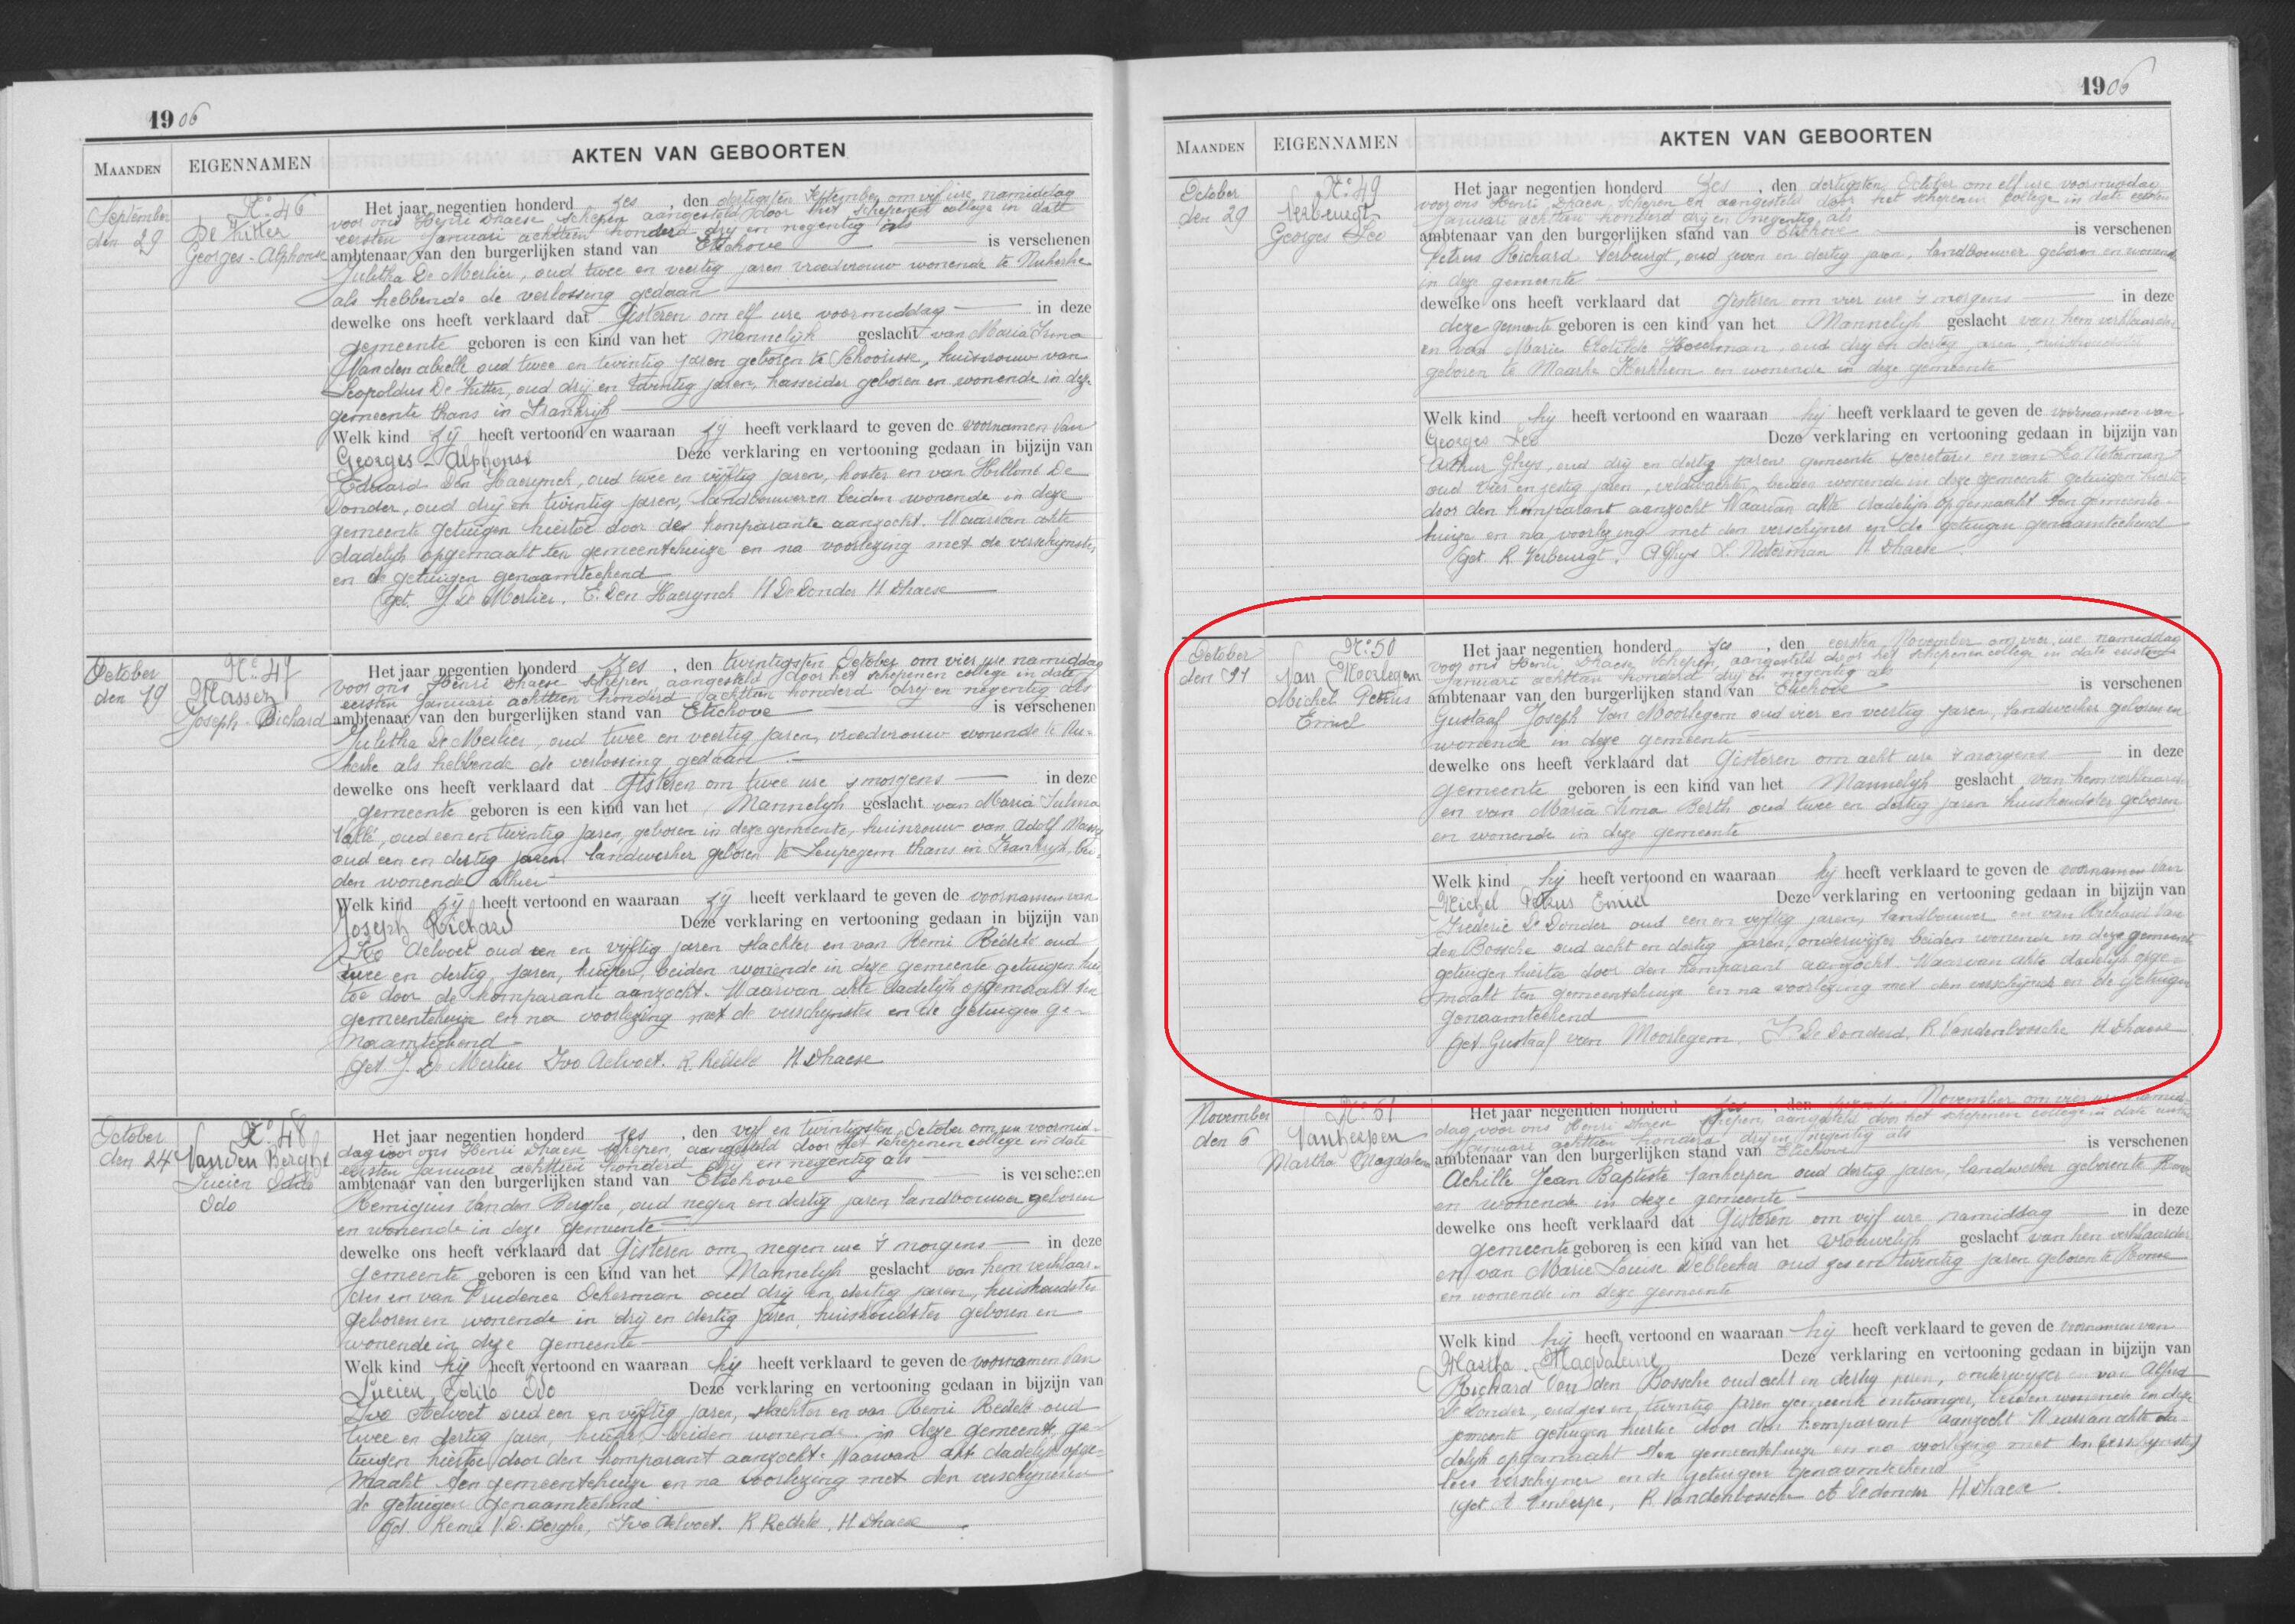 1906
MAANDEN
EIGENNAMEN
AKTEN VAN GEBOORTEN
September
den 29
No 46
De Ritter
Georges - Alphonse
Het jaar negentien honderd zes , den dertigsten September om vijf ure namiddag
voor ons Henri Dhaese schepen aangesteld door het schepenen college in date
eersten Januari achttien honderd dry en negentig als
ambtenaar van den burgerlijken stand van Etichove is verschenen
Juletha De Merlier, oud twee en veertig jaren vroedvrouw wonende te Nukerke
als hebbende de verlossing gedaan
dewelke ons heeft verklaard dat Gisteren om elf ure voormiddag in deze
gemeente geboren is een kind van het Mannelyk geslacht van Maria Irma
Vanden abeele oud twee en twintig jaren geboren te Schoorisse, huisvrouw van
Leopoldus De Ritter, oud drij en twintig jaren, kasseider geboren en wonende in deze
gemeente thans in Frankrijk
Welk kind zij heeft vertoond en waaraan zij heeft verklaard te geven de voornamen van
Georges - Alphonse Deze verklaring en vertooning gedaan in bijzijn van
Eduard Den Haerynck, oud twee en vijftig jaren, koster en van De
Donder, oud drij en twintig jaren, landbouwer en beiden wonende in deze
gemeente getuigen hiertoe door de komparante aanzocht. Waarvan akte
dadelijk opgemaakt ten gemeentehuize en na voorlezing met de verschynster
en de getuigen genaamteekend
Get. J. De Merlier. E. Den Haerynck H De Donder H Dhaese
October
den 19
No 47
Massez
Joseph - Richard
Het jaar negentien honderd Zes , den twintigsten October om vier ure namiddag
voor ons Henri Dhaese schepen aangesteld door het schepenen college in date
eersten Januari achttien honderd achttien honderd dry en negentig als
ambtenaar van den burgerlijken stand van Etichove is verschenen
Juletha De Merlier, oud twee en veertig jaren, vroedvrouw wonende te Nu-
kerke als hebbende de verlossing gedaan
dewelke ons heeft verklaard dat Gisteren om twee ure smorgens in deze
gemeente geboren is een kind van het Mannelyk geslacht van Maria
oud een en twintig jaren, geboren in deze gemeente, huisvrouw van Adolf Massez
oud een en dertig jaren landwerker geboren te Leupegem thans in Frankrijk, bei-
den wonende alhier
Welk kind zij heeft vertoond en waaraan zij heeft verklaard te geven de voornamen van
Joseph Richard Deze verklaring en vertooning gedaan in bijzijn van
Ivo Aelvoet oud een en vijftig jaren slachter en van Remi Redelé oud
twee en dertig, jaren, kuiper, beiden wonende in deze gemeente getuigen hier
toe door de komparante aanzocht. Waarvan akte dadelijk opgemaakt ten
gemeentehuize en na voorlezing met de verschynster en de getuigen ge-
naamteekend
Get. J. De Merlier Ivo Aelvoet. R. Redelé H Dhaese
October
den 24
No 48
Vanden Berghe
Lucien
Odo
Het jaar negentien honderd zes , den vijf en twintigsten October om ure voormid-
dag voor ons Henri Dhaese schepen, aangesteld door het schepenen college in date
eersten Januari achttien honderd dry en negentig als
ambtenaar van den burgerlijken stand van Etichove is verschenen
Remigius Vanden Berghe, oud negen en dertig jaren landbouwer geboren
en wonende in deze gemeente
dewelke ons heeft verklaard dat Gisteren om negen ure 's morgens in deze
gemeente geboren is een kind van het Mannelyk geslacht van hem verklaar-
der en van Prudence Ockerman oud drij en dertig jaren, huishoudster
geboren en wonende in drij en dertig jaren, huishoudster geboren en
wonende in deze gemeente
Welk kind hij heeft vertoond en waaraan hij heeft verklaard te geven de voornamen van
Lucien Odo Deze verklaring en vertooning gedaan in bijzijn van
Ivo Aelvoet oud een en vijftig jaren, slachter en van Remi Redelé oud
twee en dertig jaren, kuiper beiden wonende in deze gemeente, ge-
tuigen hiertoe door den komparant aanzocht. Waarvan akt dadelijk opge-
maakt ten gemeentehuize en na voorlezing met den verschijner en
de getuigen genaamteekend
Get. Remi V.D. Berghe, Ivo Aelvoet. R Redelé. H Dhaese
1906
MAANDEN
EIGENNAMEN
AKTEN VAN GEBOORTEN
October
den 29
No 49
Verbeurgt
Georges Leo
Het jaar negentien honderd Zes , den dertigsten October om elf ure voormiddag
voor ons Henri Dhaese, schepen en aangesteld door het schepenen college in date eersten
Januari achttien honderd dry en negentig als
ambtenaar van den burgerlijken stand van Etichove is verschenen
Petrus Richard Verbeurgt, oud zeven en dertig jaren, landbouwer geboren en wonende
in deze gemeente
dewelke ons heeft verklaard dat Gisteren om vier ure 's morgens in deze
deze gemeente geboren is een kind van het Mannelijk geslacht van hem verklaarder
en van Marie Clotilde oud drij en dertig jaren, huishoudster
geboren te Maarke Kerkhem en wonende in deze gemeente
Welk kind hij heeft vertoond en waaraan hij heeft verklaard te geven de voornamen van
Georges Leo Deze verklaring en vertooning gedaan in bijzijn van
Arthur Ghys, oud drij en dertig jaren gemeente secretaris en van Leo Noterman
oud vier en zestig jaren, veldwachter beiden wonende in deze gemeente getuigen hiertoe
door den komparant aanzocht Waarvan akte dadelijk opgemaakt ten gemeente-
huize en na voorlezing met den verschijner en de getuigen genaamteekend
Get. R. Verbeurgt. A Ghys L. Noterman H Dhaese
October
den 31
No 50
Van Moorlegem
Michel Petrus
Emiel
Het jaar negentien honderd zes , den eersten November om vier ure namiddag
voor ons Henri Dhaese schepen, aangesteld door het schepenen college in date eersten
Januari achttien honderd drij en negentig als
ambtenaar van den burgerlijken stand van Etichove is verschenen
Gustaaf Joseph Van Moorlegem oud vier en veertig jaren, landwerker geboren en
wonende in deze gemeente
dewelke ons heeft verklaard dat Gisteren om acht ure 's morgens in deze
gemeente geboren is een kind van het Mannelijk geslacht van hem verklaarder
en van Maria Irma Berth oud twee en dertig jaren huishoudster geboren
en wonende in deze gemeente
Welk kind hij heeft vertoond en waaraan hij heeft verklaard te geven de voornamen van
Michel Petrus Emiel Deze verklaring en vertooning gedaan in bijzijn van
Frederic De Donder oud een en vijftig jaren, landbouwer en van Richard Van
den Bossche oud acht en dertig jaren, onderwijzer beiden wonende in deze gemeente
getuigen hiertoe door den komparant aanzocht. Waarvan akte dadelijk opge-
maakt ten gemeentehuize en na voorlezing met den verschijner en de getuigen
genaamteekend
Get. Gustaaf van Moorlegem. F. De Donder, R. Vandenbossche H Dhaese
November
den 6
No 51
Vanherpen
Martha Magdalena
Het jaar negentien honderd Zes , den November om vier ure namid-
dag voor ons Henri Dhaese schepen aangesteld door het schepenen college in date eersten
Januari achttien honderd drij en negentig als
ambtenaar van den burgerlijken stand van Etichove is verschenen
Achille Jean Baptiste Vanherpen oud dertig jaren, landwerker geboren te Ronse
en wonende in deze gemeente
dewelke ons heeft verklaard dat Gisteren om vijf ure namiddag in deze
gemeente geboren is een kind van het vrouwelijk geslacht van hem verklaarder
en van Marie Louise Debleeker oud zes en twintig jaren geboren te Ronse
en wonende in deze gemeente
Welk kind hij heeft vertoond en waaraan hij heeft verklaard te geven de voornamen van
Martha. Magdalene Deze verklaring en vertooning gedaan in bijzijn van
Richard Van den Bossche oud acht en dertig jaren, onderwijzer en van Alfred
De Donder, oud zes en twintig jaren gemeente ontvanger, beiden wonende in deze
gemeente getuigen hiertoe door den komparant aanzocht Waarvan akte da-
delijk opgemaakt ten gemeentehuize en na voorlezing met den (verschynster)
lees verschyner en de getuigen genaamteekend
Get A Vanherpe, R Vandenbossche A Dedonder H Dhaese.